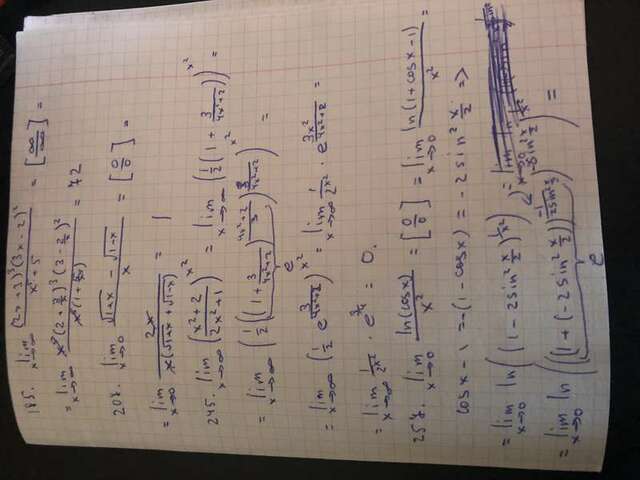 185. lim x→∞ (2x+3)^3(3x-2)^2 / x^5+5 = [∞/∞] =
= lim x→∞ x^5(2+3/x)^3(3-2/x)^2 / x^5(1+5/x^5) = 72
207. lim x→0 √1+x - √1-x / x = [0/0] =
= lim x→0 2x / x(√1+x + √1-x) = 1
245. lim x→∞ (x^2+2 / 2x^2+1)^x^2 = lim x→∞ (1/2(1 + 3/4x^2+2))^x^2 =
= lim x→∞ (1/2((1 + 3/4x^2+2)^4x^2+2/3)^3/4x^2+2)^x^2 =
e
= lim x→∞ (1/2 e^3/4x^2+2)^x^2 = lim x→∞ 1/2^x^2 · e^3x^2/4x^2+2 =
= lim x→∞ 1/2^x^2 · e^3/4 = 0.
257. lim x→0 ln(cosx) / x^2 = [0/0] = lim x→0 ln(1+cosx-1) / x^2 =
cosx - 1 = -(1 - cosx) = -2sin^2 x/2 =>
= lim x→0 ln((1 - 2sin^2 x/2)^1/x^2) =
= lim x→0 ln(((1 + (-2sin^2 x/2))^-1/2sin^2 x/2)^-2sin^2 x/2)^1/x^2) =
e